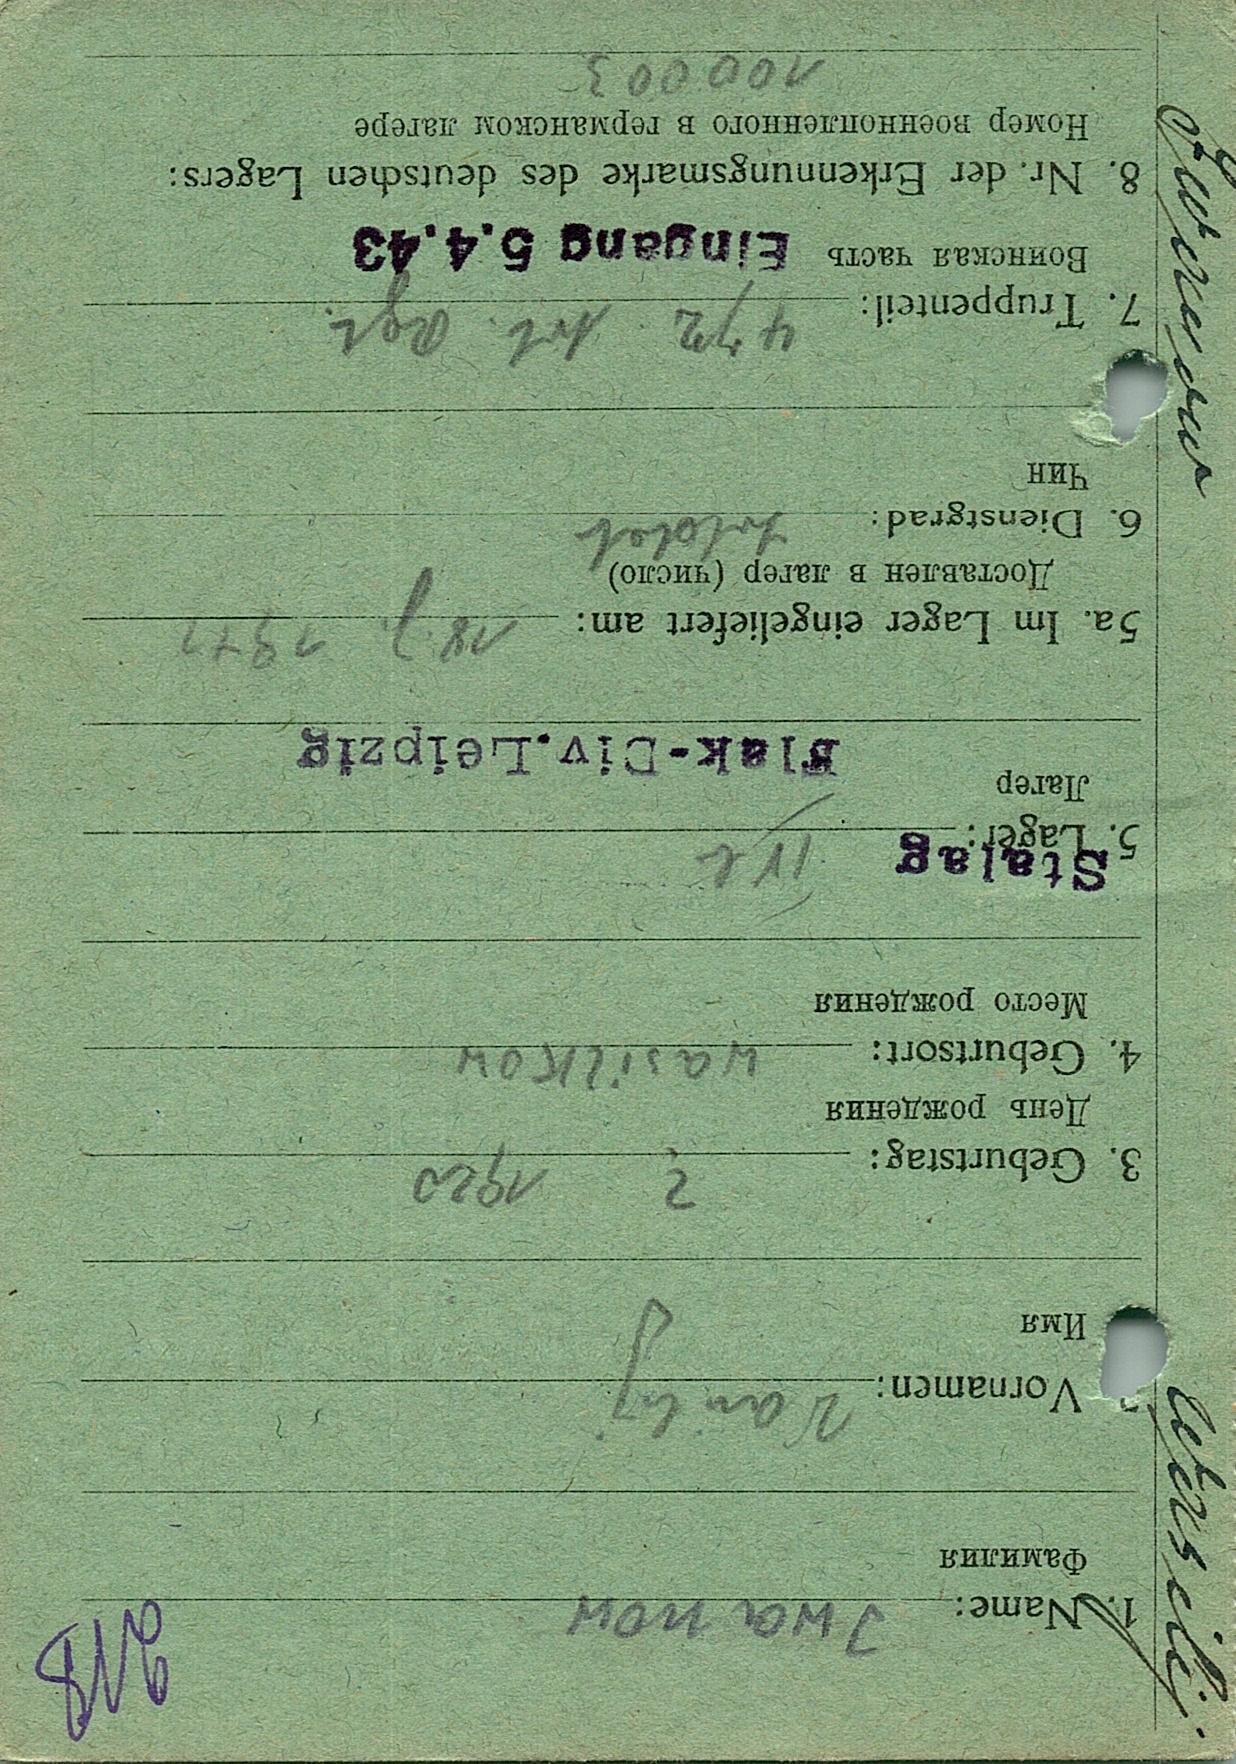 1. Name: Iwanow
Фамилия
Vornamen:
Имя
3. Geburtstag: ? 1920
День рождения
4. Geburtsort: Wasilkow
Место рождения
Stalag
5. Lager: IV
Лагер
Flak-Div.Leipzig
5a. Im Lager eingeliefert am: 18. 1941
Доставлен в лагер (число)
6. Dienstgrad: Soldat
Чин
7. Truppenteil: 472 Art. Rgt.
Воинская часть Eingang 5.4.43
8. Nr. der Erkennungsmarke des deutschen Lagers:
Номер военнопленного в германском лагере
100003